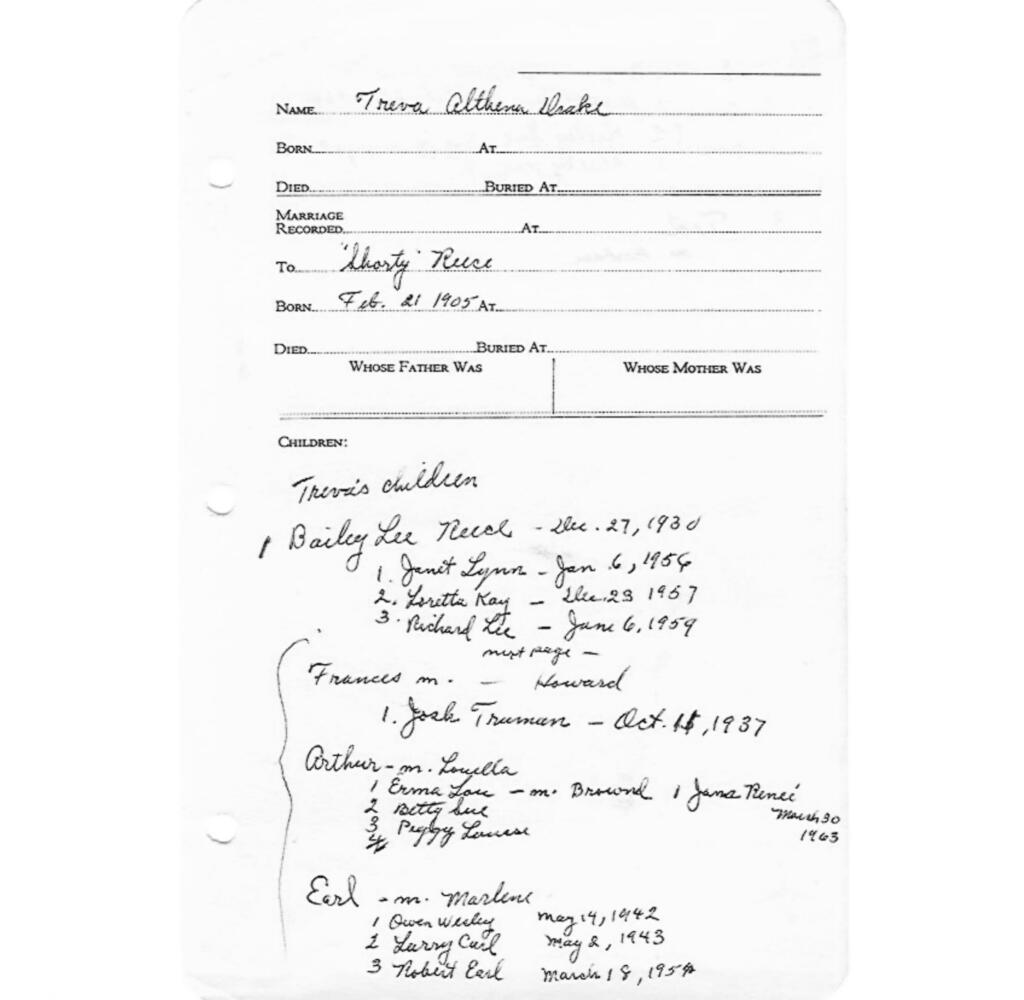 NAME Treva Althena Drake
BORN AT
DIED BURIED AT
MARRIAGE
RECORDED AT
TO "Shorty" Reece
BORN Feb. 21 1905 AT
DIED BURIED AT
WHOSE FATHER WAS WHOSE MOTHER WAS
CHILDREN:
Treva's children
1 Bailey Lee Reece - Dec. 27, 1930
1. Janet Lynn - Jan 6, 1956
2. Loretta Kay - Dec. 23 1957
3. Richard Lee - June 6, 1959
next page -
Frances m. - Howard
1. Josh Truman - Oct. , 1937
Arthur - m. Louella
1 Erma Lou - m. Brownd 1 Jana Reneé
March 30
1963
2 Betty Sue
3 Peggy Louise
4
Earl - m. Marlene
1 Owen Wesley May 14, 1942
2 Larry Carl May 2, 1943
3 Robert Earl March 18, 1954